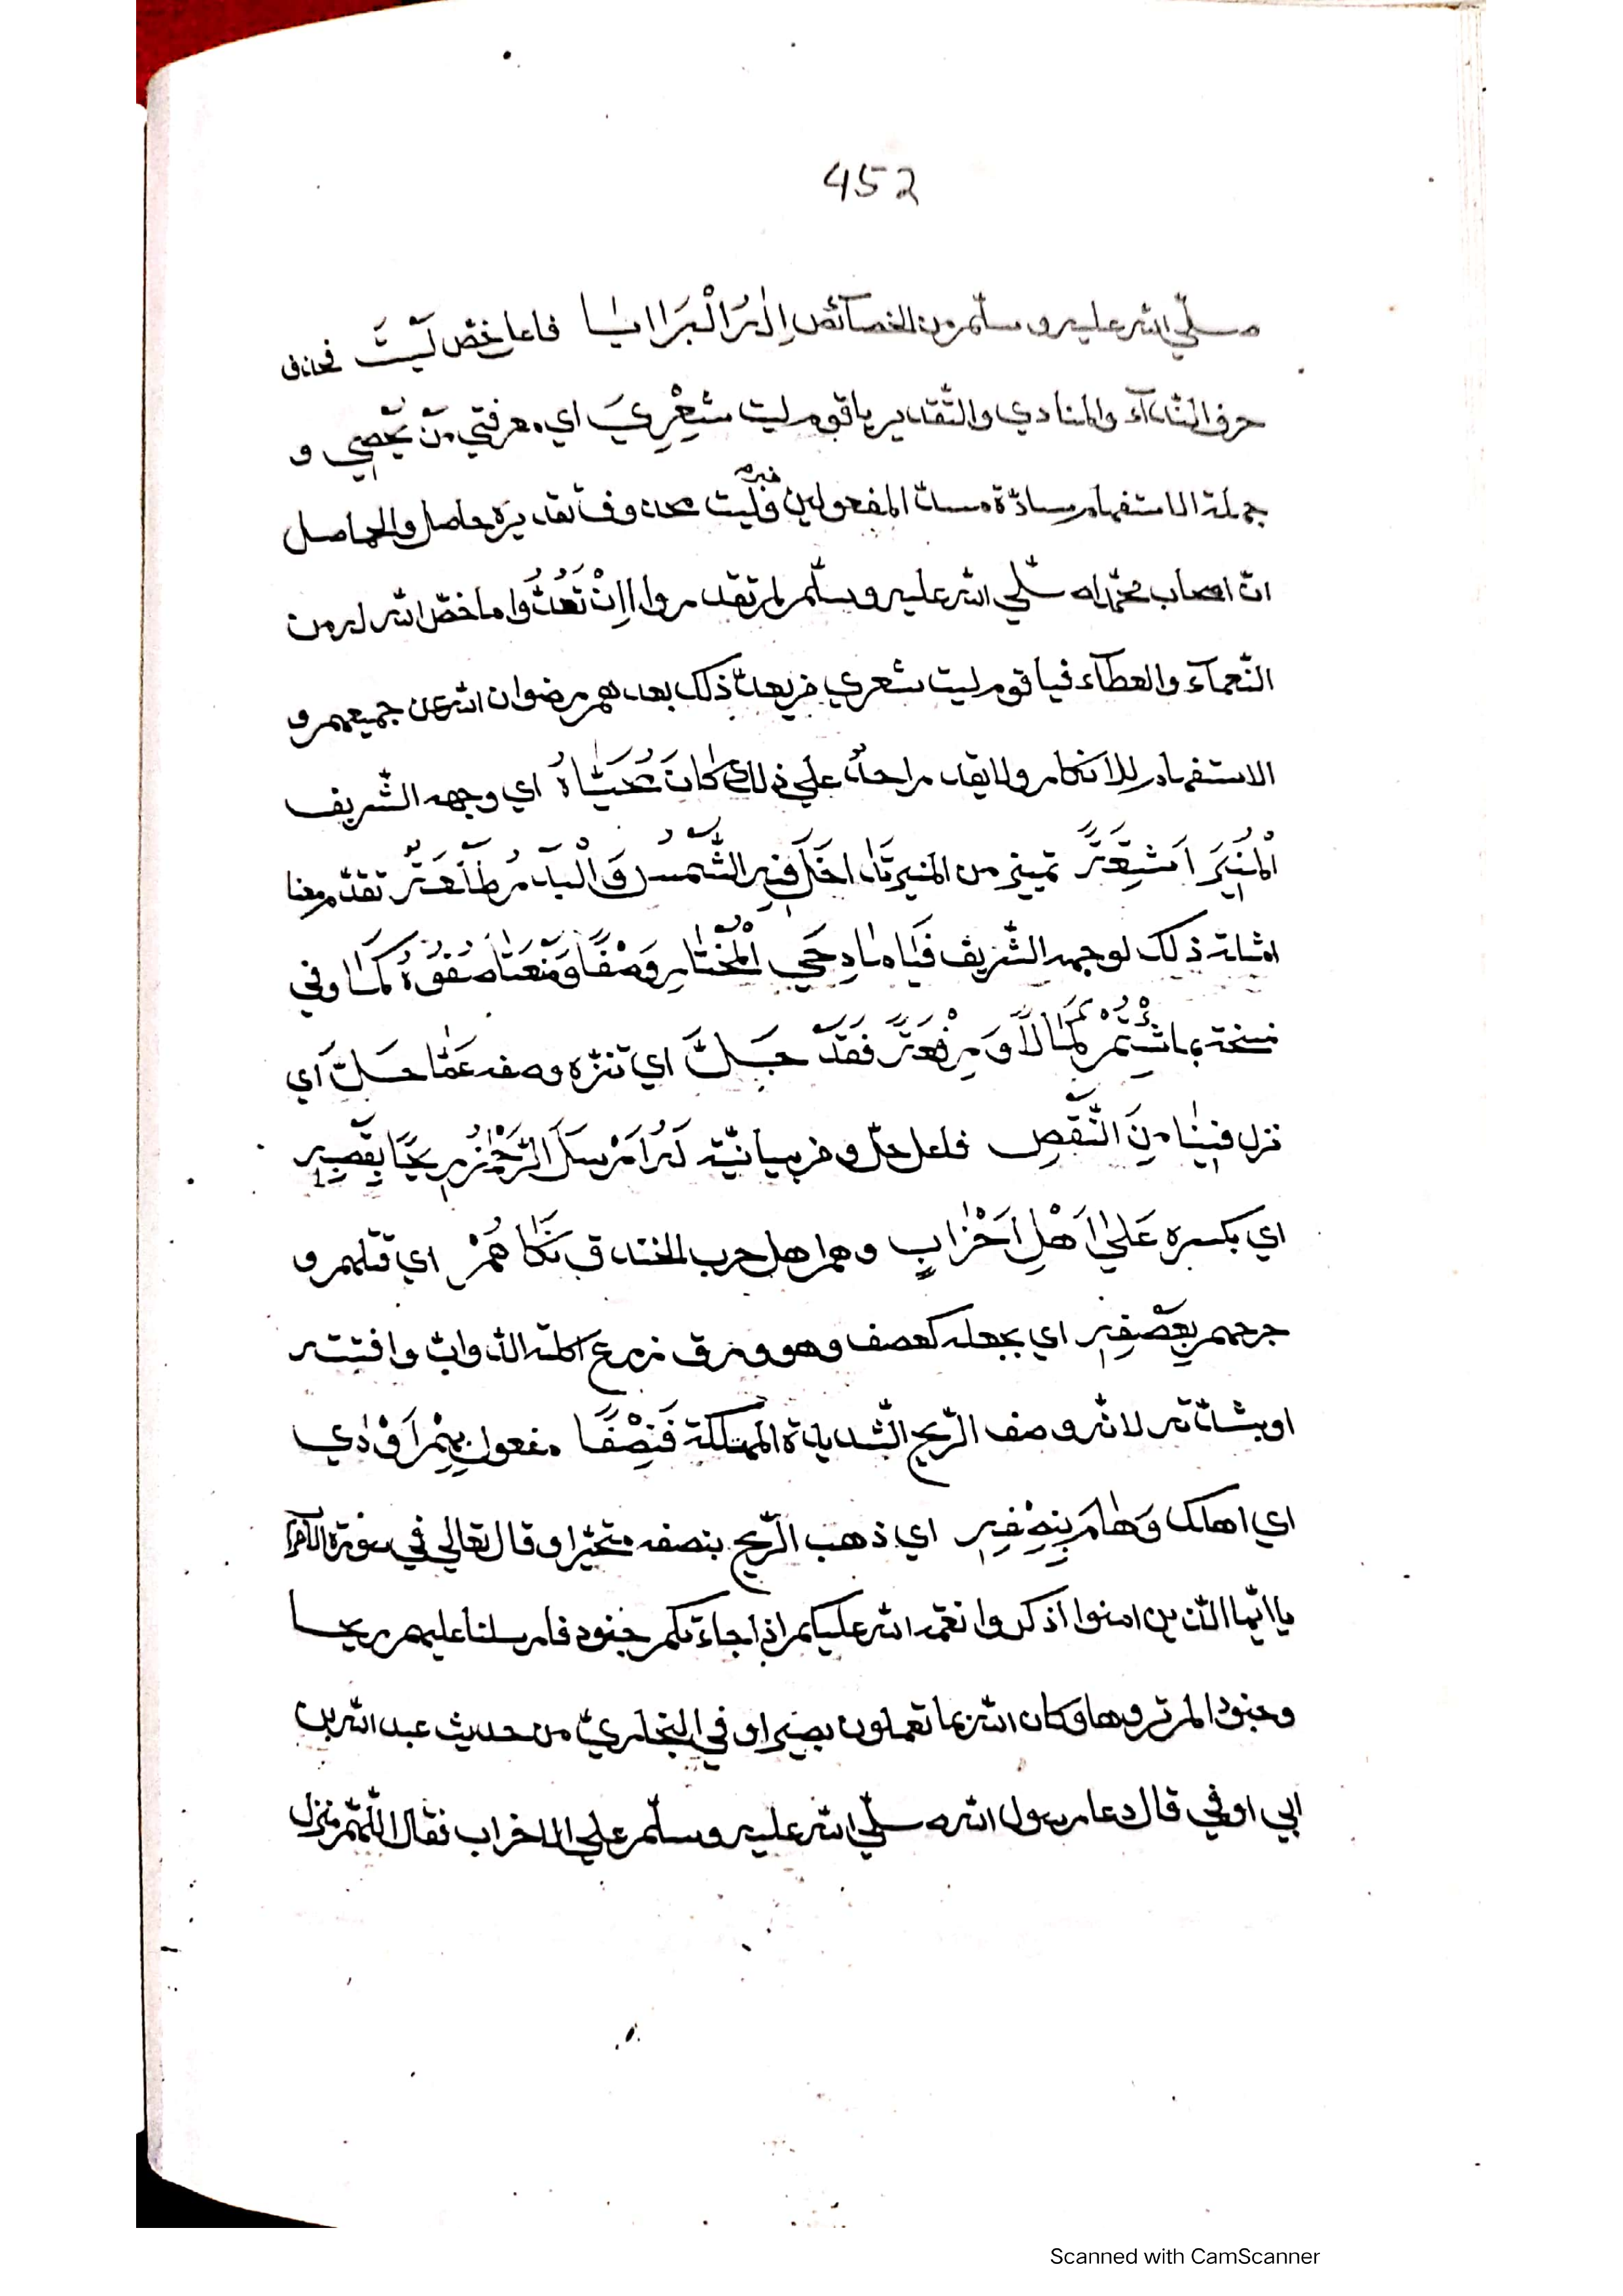 452
صلّي الله عليه وسلّم من الخصائص اِلٰهُ الْبَرَايَا فاعل خصّ لَيْتَ فحذف
حرف النّدآء والمنادي والتّقدير ياقوم ليت شِعْرِيَ اي معرفتي مَنْ يُحْصِي و
جملة الاستفهام سادّة مسدّ المفعولين وخبره ليت محذوف تقديره حاصل والحاصل
انّ اصحاب محمّد صلّي الله عليه وسلّم لم تقدروا اِنْ تَعُدُّوا ما خصّ الله له من
النّعمآء والعطآء فيا قوم ليت شعري من يعدّ ذلك بعدهم رضوان الله عن جميعهم و
الاستفهام للانكار ولا يقدر احدٌ علي ذلك كَانَ مُحَيَّاهُ اي وجهه الشّريف
الْمُنِيرَ اَشِعَّةً تمييز من المنير تَدَاخَلَ فِيهِ الشَّمْسُ وَالْبَدْرُ طَلْعَةً تقدّم معنا
امثلة ذلك لوجهه الشّريف فَيَا مَادِحِي الْمُخْتَارِ وَصْفًا وَمَنْعَتًا صِفُوهُ كَمَا وفي
نسخة بما شِئْتُمْ كَمَالًا وَرِفْعَةً فَقَدْ جَلَّ اي تنزّه وصفه عَمَّا حَلَّ اَي
نزل فِينَا مِنَ النَّقْصِ فاعل حلّ و من بيانيّة لَهُ اَرْسَلَ الرَّحْمٰنُ رِيحًا بِقَصْفِهِ
اي بكسره عَلَيٰ اَهْلِ اَحْزَابٍ وهم اهل حرب الخندق نَكَاهُمْ اي قتلهم و
جرحهم بِعَصْفِهِ اي بجعله كعصف وهو ورق زرع اكلته الدّوابّ وافتته
او بشدّته لانّه وصف الرّيح الشّديدة المهلكة فَنِصْفًا مفعول بِهِمْ اَوْدٰي
اي اهلك وَهَامَ بِنِصْفِهِ اي ذهب الرّيح بنصفه متحيّرا وقال تعالي في سورة الاحزاب
يا ايّها الّذين امنوا اذكروا نعمة الله عليكم اذ جاءتكم جنود فارسلنا عليهم ريحا
وجنودا لم تروها وكان الله بما تعملون بصيرا و في البخاريّ من حديث عبد الله بن
ابي اوفي قال دعا رسول الله صلّي الله عليه وسلّم علي الاحزاب فقال اللّهمّ منزل
Scanned with CamScanner